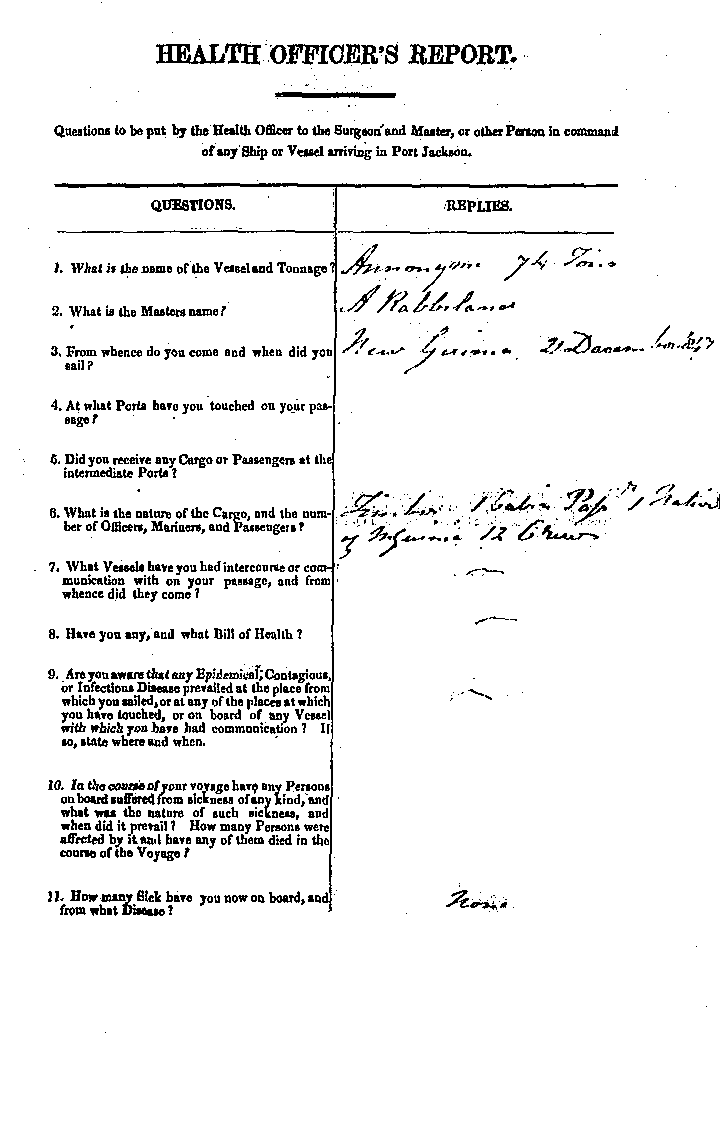 HEALTH OFFICER'S REPORT.
Questions to be put by the Health Officer to the Surgeon and Master, or other Person in command
of any Ship or Vessel arriving in Port Jackson.
QUESTIONS.
REPLIES.
1. What is the name of the Vessel and Tonnage?
74 Tons
2. What is the Masters name?
A
3. From whence do you come and when did you
sail?
New Guinea 21
4. At what Ports have you touched on your pas-
sage?
5. Did you receive any Cargo or Passengers at the
intermediate Ports?
6. What is the nature of the Cargo, and the num-
ber of Officers, Mariners, and Passengers?
Timber 1 Cabin Passr 1 Native
of 12 Crew
7. What Vessels have you had intercourse or com-
munication with on your passage, and from
whence did they come?
8. Have you any, and what Bill of Health?
9. Are you aware that any Epidemical, Contagious,
or Infectious Disease prevailed at the place from
which you sailed, or at any of the places at which
you have touched, or on board of any Vessel
with which you have had communication? If
so, state where and when.
10. In the course of your voyage have any Persons
on board suffered from sickness of any kind, and
what was the nature of such sickness, and
when did it prevail? How many Persons were
affected by it and have any of them died in the
course of the Voyage?
11. How many Sick have you now on board, and
from what Disease?
None